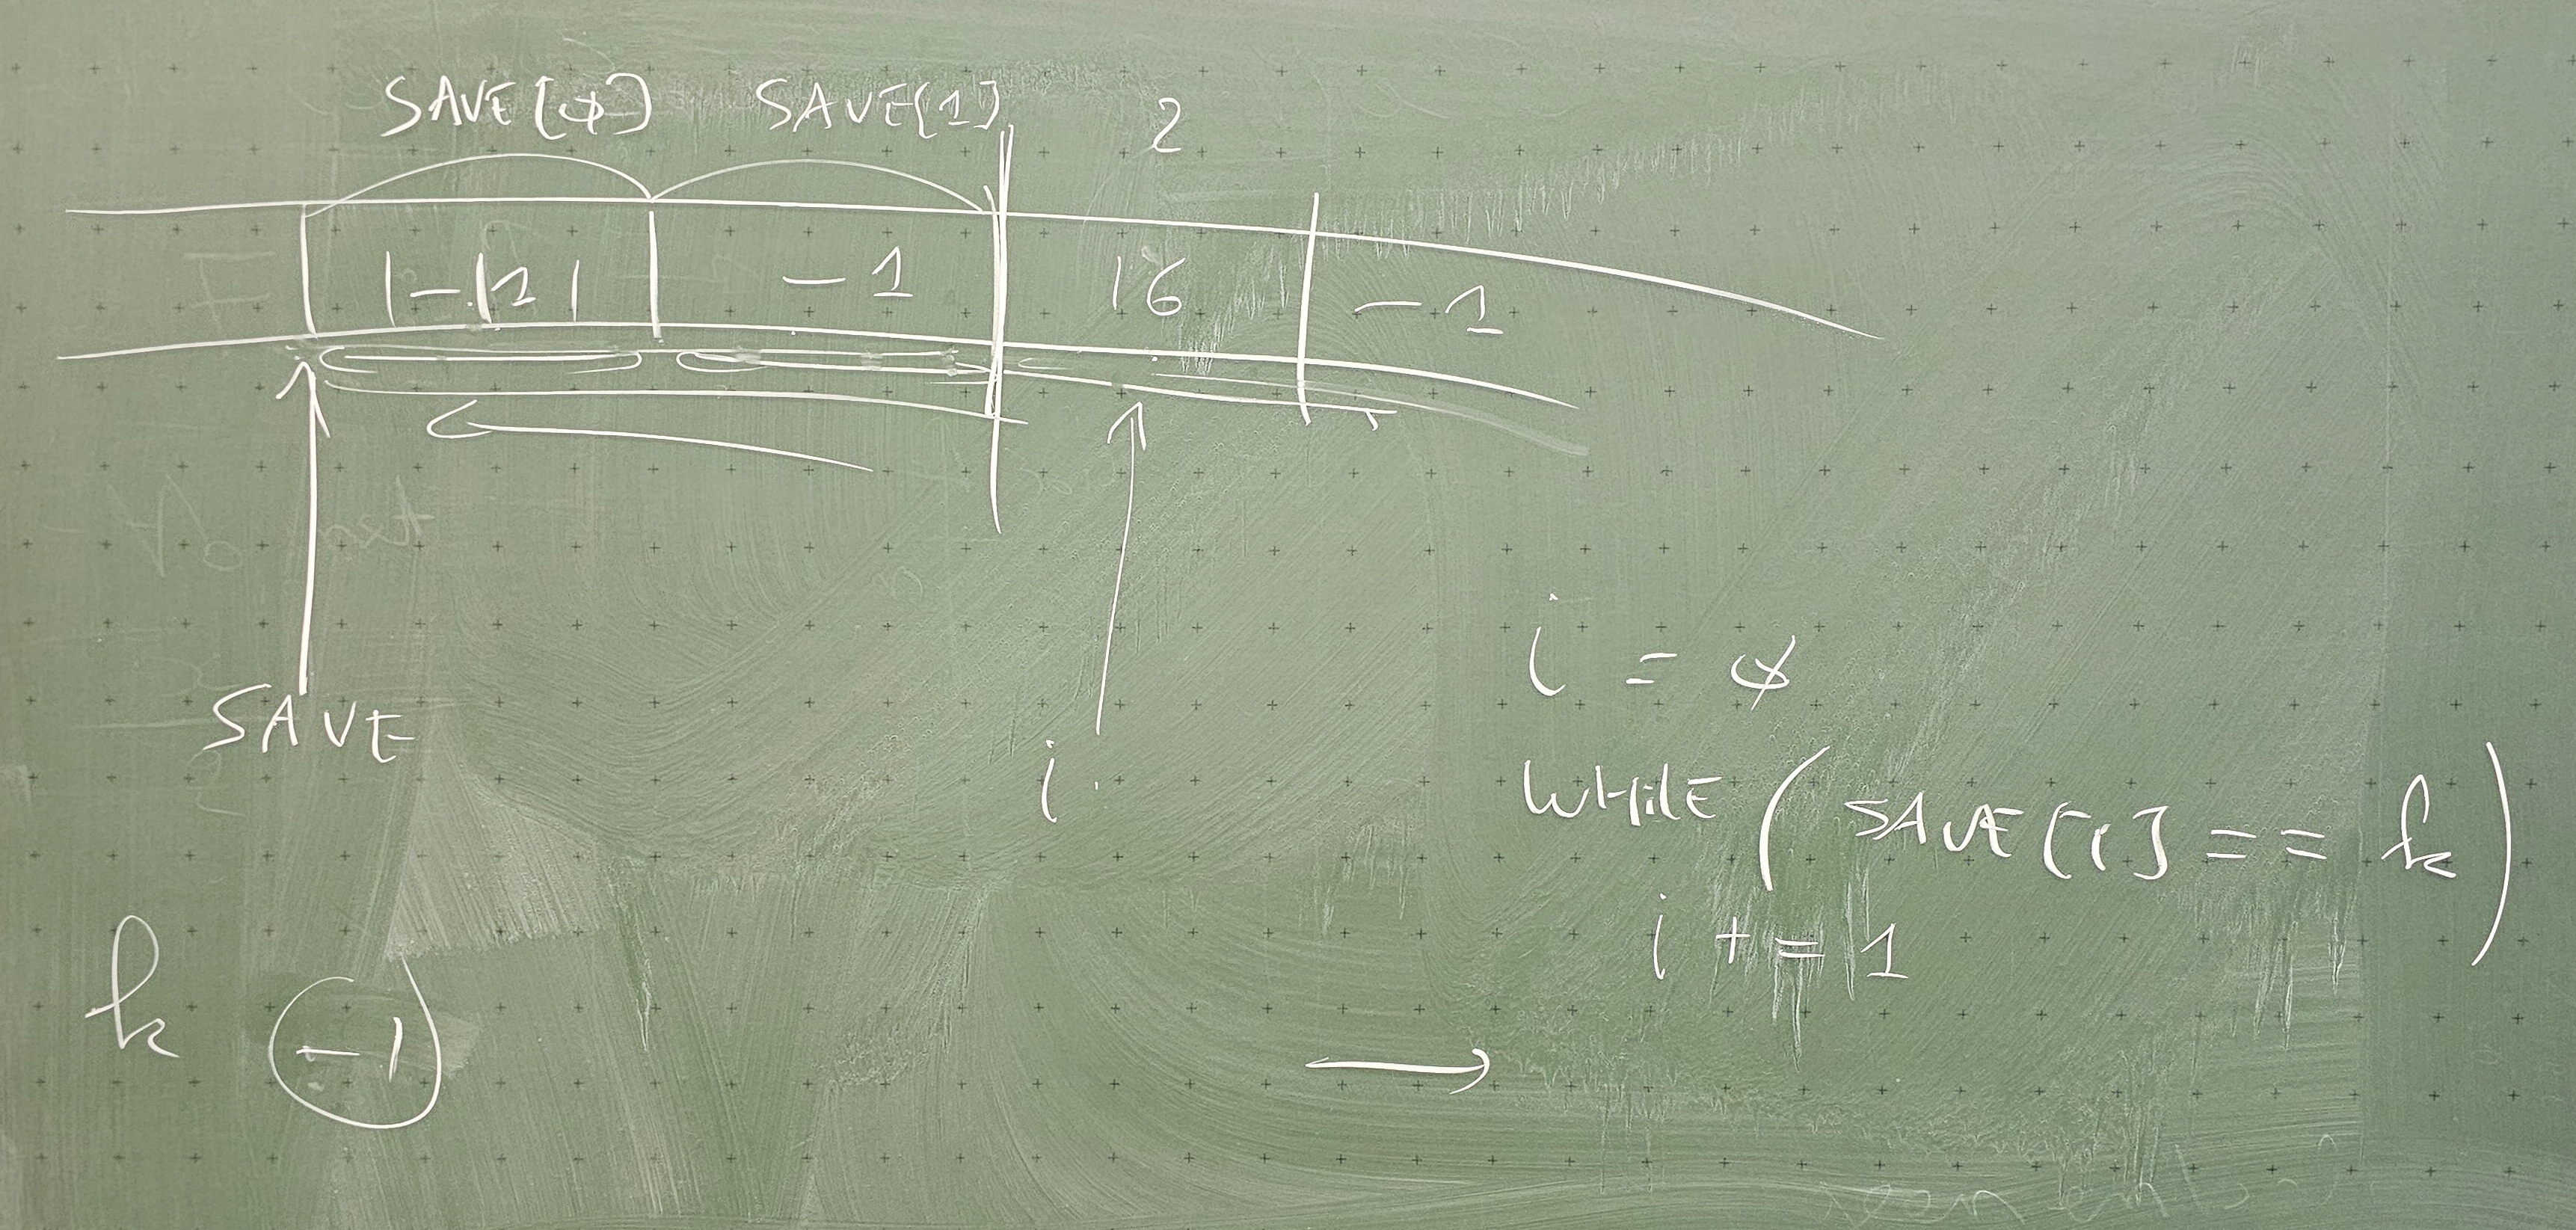 SAVE[ϕ] SAVE[1] 2
|-|1| -1 16 -1
SAVE
i
i = ϕ
WHILE (SAVE[i] == k)
i += 1
k -1